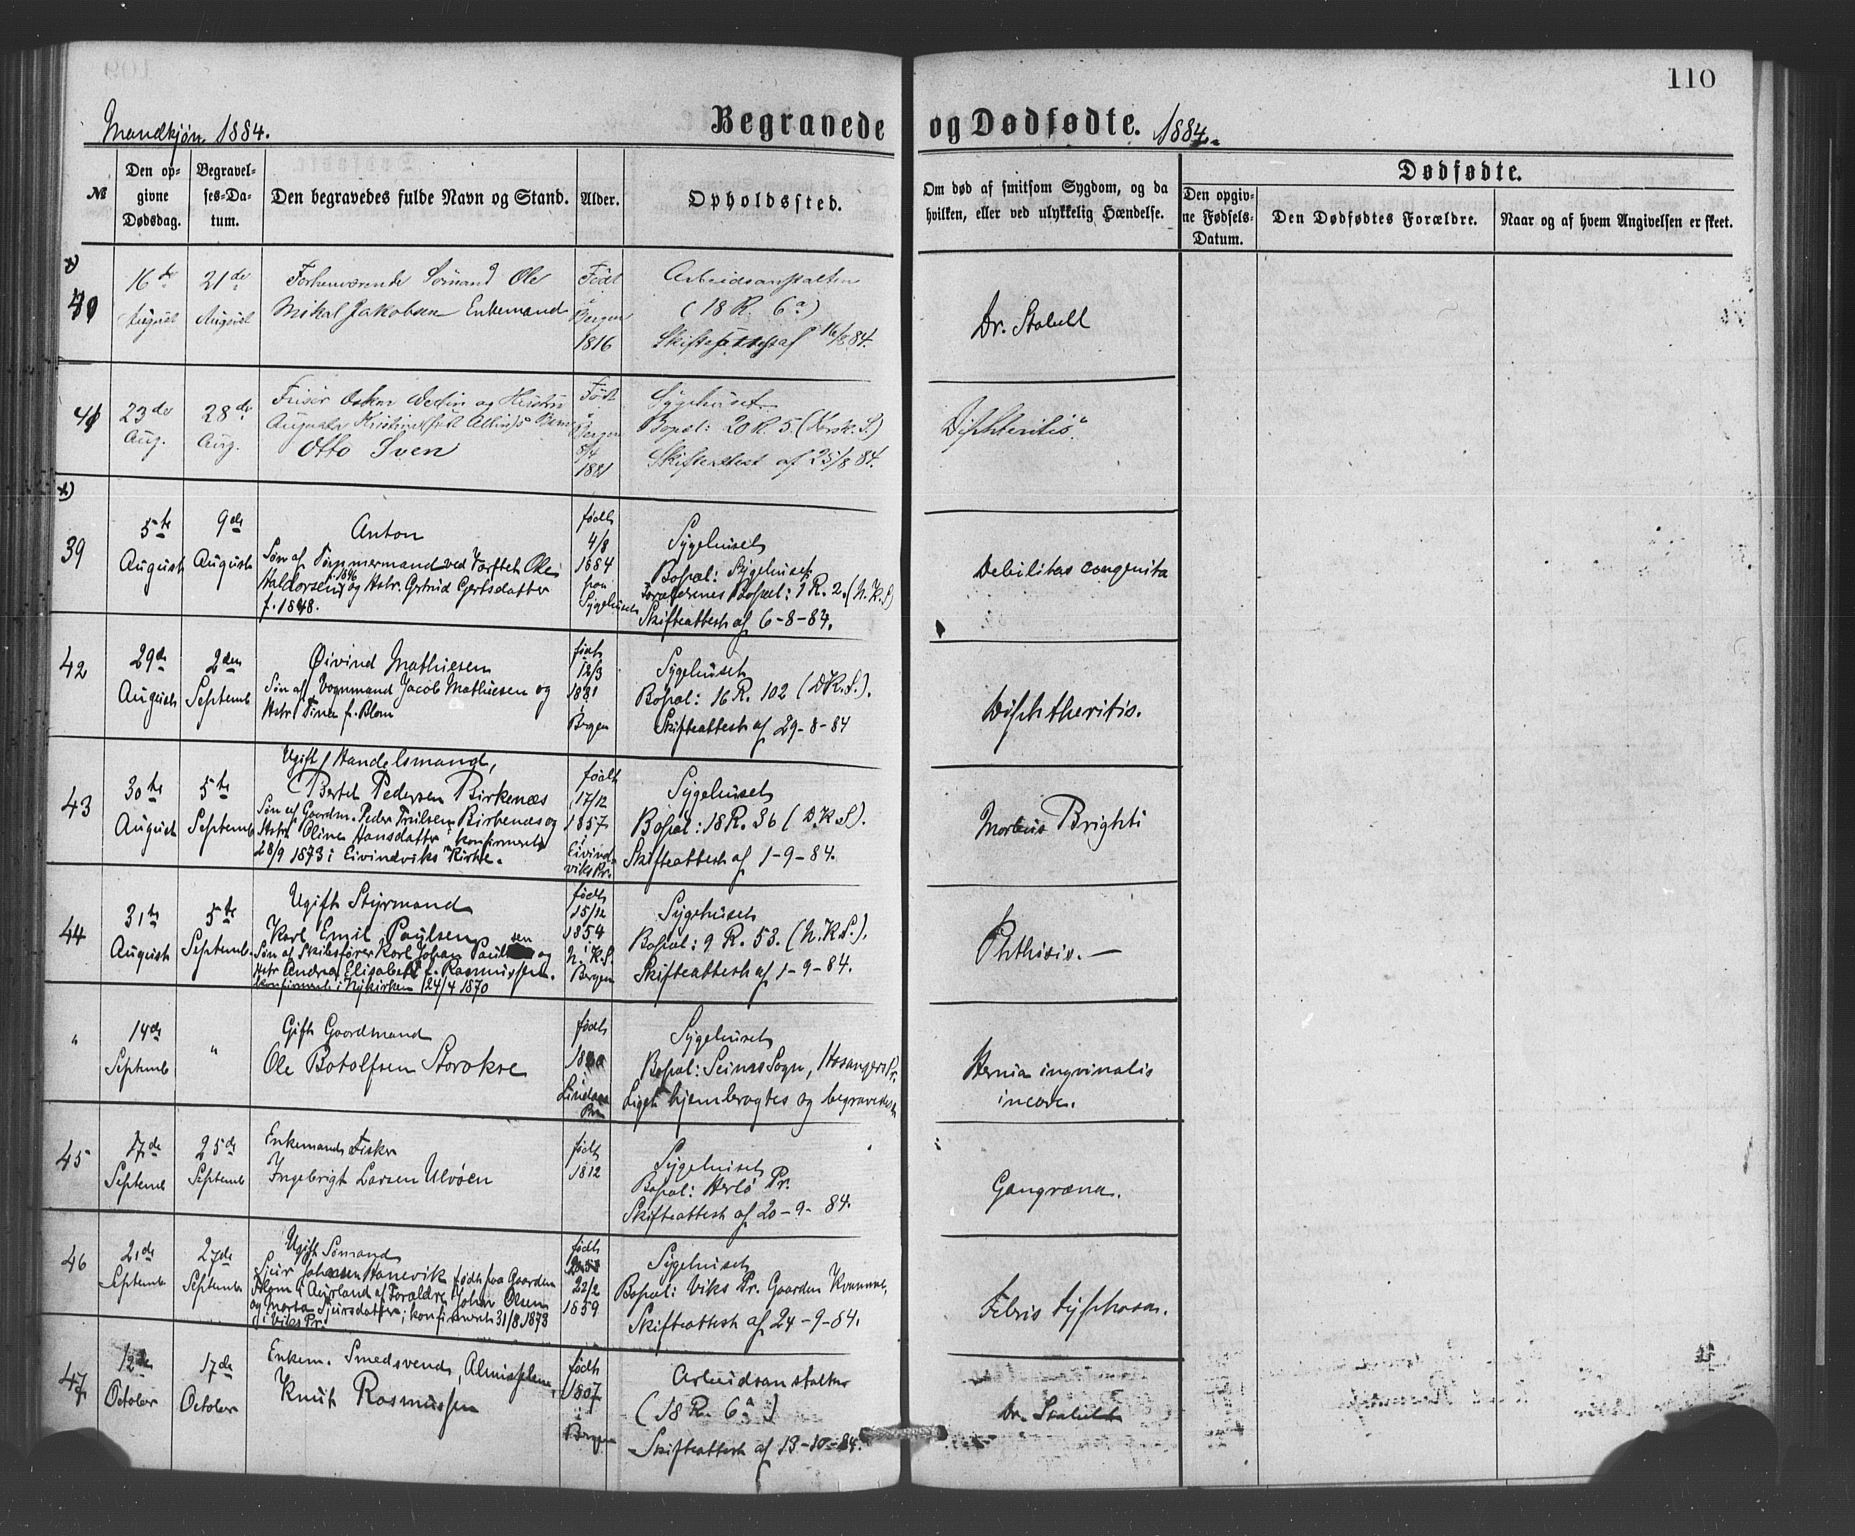 110
Mandkjøn 1884.
Begravede og Dødfødte. 1884.
№
Den opgivne Dødsdag.
Begravelses-Datum.
Den begravedes fulde Navn og Stand.
Alder.
Opholdssted.
Om død af smitsom Sygdom, og da hvilken, eller ved ulykkelig Hændelse.
Dødfødte.
Den opgivne Fødsels-Datum.
Den Dødfødtes Forældre.
Naar og af hvem Angivelsen er skeet.
x)
40
16de August
21de August
Forhenværende Sømand Ole
Mikal Jakobsen Enkemand
Født
i
Bergen
1816
Arbeidsanstalten
(18 R. 6a)
Skifteattest af 16/8 84.
Dr. Stabell
41
23de Aug.
28de Aug.
Frisør Oskar og Hustru
Augusta
Otto Sven
Født
i
Bergen
1881
Sygehuset.
Bopæl: 20 R. 5 (Korsk. S.)
Skifteattest af 25/8 84.
Diphteritis.
x)
39
5te August
9de August
Anton
Søn af Tømmermand ved Værftet Ole
Haldorsen f. 1846 og Hstr. Gertrud Gertsdatter
f. 1848.
født
4/8
1884
paa
Sygehuset
Sygehuset
Bopæl: Sygehuset
Forældrenes Bopæl: 9 R. 2. (N.K.S)
Skifteattest af 6-8-84.
Debilitas congenita
42
29de August
2den Septemb
Øivind Mathiesen
Søn af Vognmand Jacob Mathiesen og
Hstr Tina f. Blom
født
12/3
1881
i
Bergen
Sygehuset
Bopæl: 16 R. 102 (D.K.S.).
Skifteattest af 29-8-84
Diphtheritis.
43
30te August
5te Septemb
Ugift Handelsmand,
Bertel Pedersen Birkenæs
Søn af Gaardm. Peder Truelsen Birkenæs og
Hstr Oline Hansdatter, konfirmeret
28/9 1873 i Eivindviks Kirke.
født
17/12
1857
i
Eivind-
viks Pr.
Sygehuset
Bopæl: 18 R. 36 (D.K.S).
Skifteattest af 1-9-84.
Morbus Brighti
44
31te August
5te Septemb.
Ugift Styrmand
Karl Emil Paulsen
Søn af Skibsfører Karl Johan Paulsen og
Hstr Andrea Elisabet f. Rasmussen.
konfirmeret i Nykirken 24/4 1870
født
15/12
1854
i
N.K.S.
Bergen
Sygehuset
Bopæl: 9 R. 53. (N.K.S.).
Skifteattest af 1-9-84.
Phthisis. —
"
14de Septemb
"
Gift Gaardmand
Ole Botolfsen Storokse
født
Lindaas
Sygehuset
Bopæl: Seims Sogn, Hosangers Pr.
Liget hjembragtes og begravedes
Hernia ingvinalis
incarc.
45
17de Septemb
25de Septemb
Enkemand Fisker
Ingebrigt Larsen Ulvøen
født
1812
Sygehuset
Bopæl: Herlø Pr.
Skifteattest af 20-9-84.
Gangræna.
46
21de Septemb
27de Septemb
Ugift Sømand
Sjur Johansen Hanevik født paa Gaarden
i Aurland af Forældre Johan Olsen
og Marta Sjursdatter, konfirmeret 31/8 1873
i Viks Pr.
født
22/2
1859
Sygehuset
Bopæl: Viks Pr. Gaarden Kvamme,
Skifteattest af 24-9-84.
Febris typhosa.
47
12te October
17de October
Enkem. Smedsvend, Almisselem,
Knut Rasmussen
født
1807
i
Bergen
Arbeidsanstalten
(18 R. 6a)
Skifteattest af 13-10-84.
Dr. Stabell